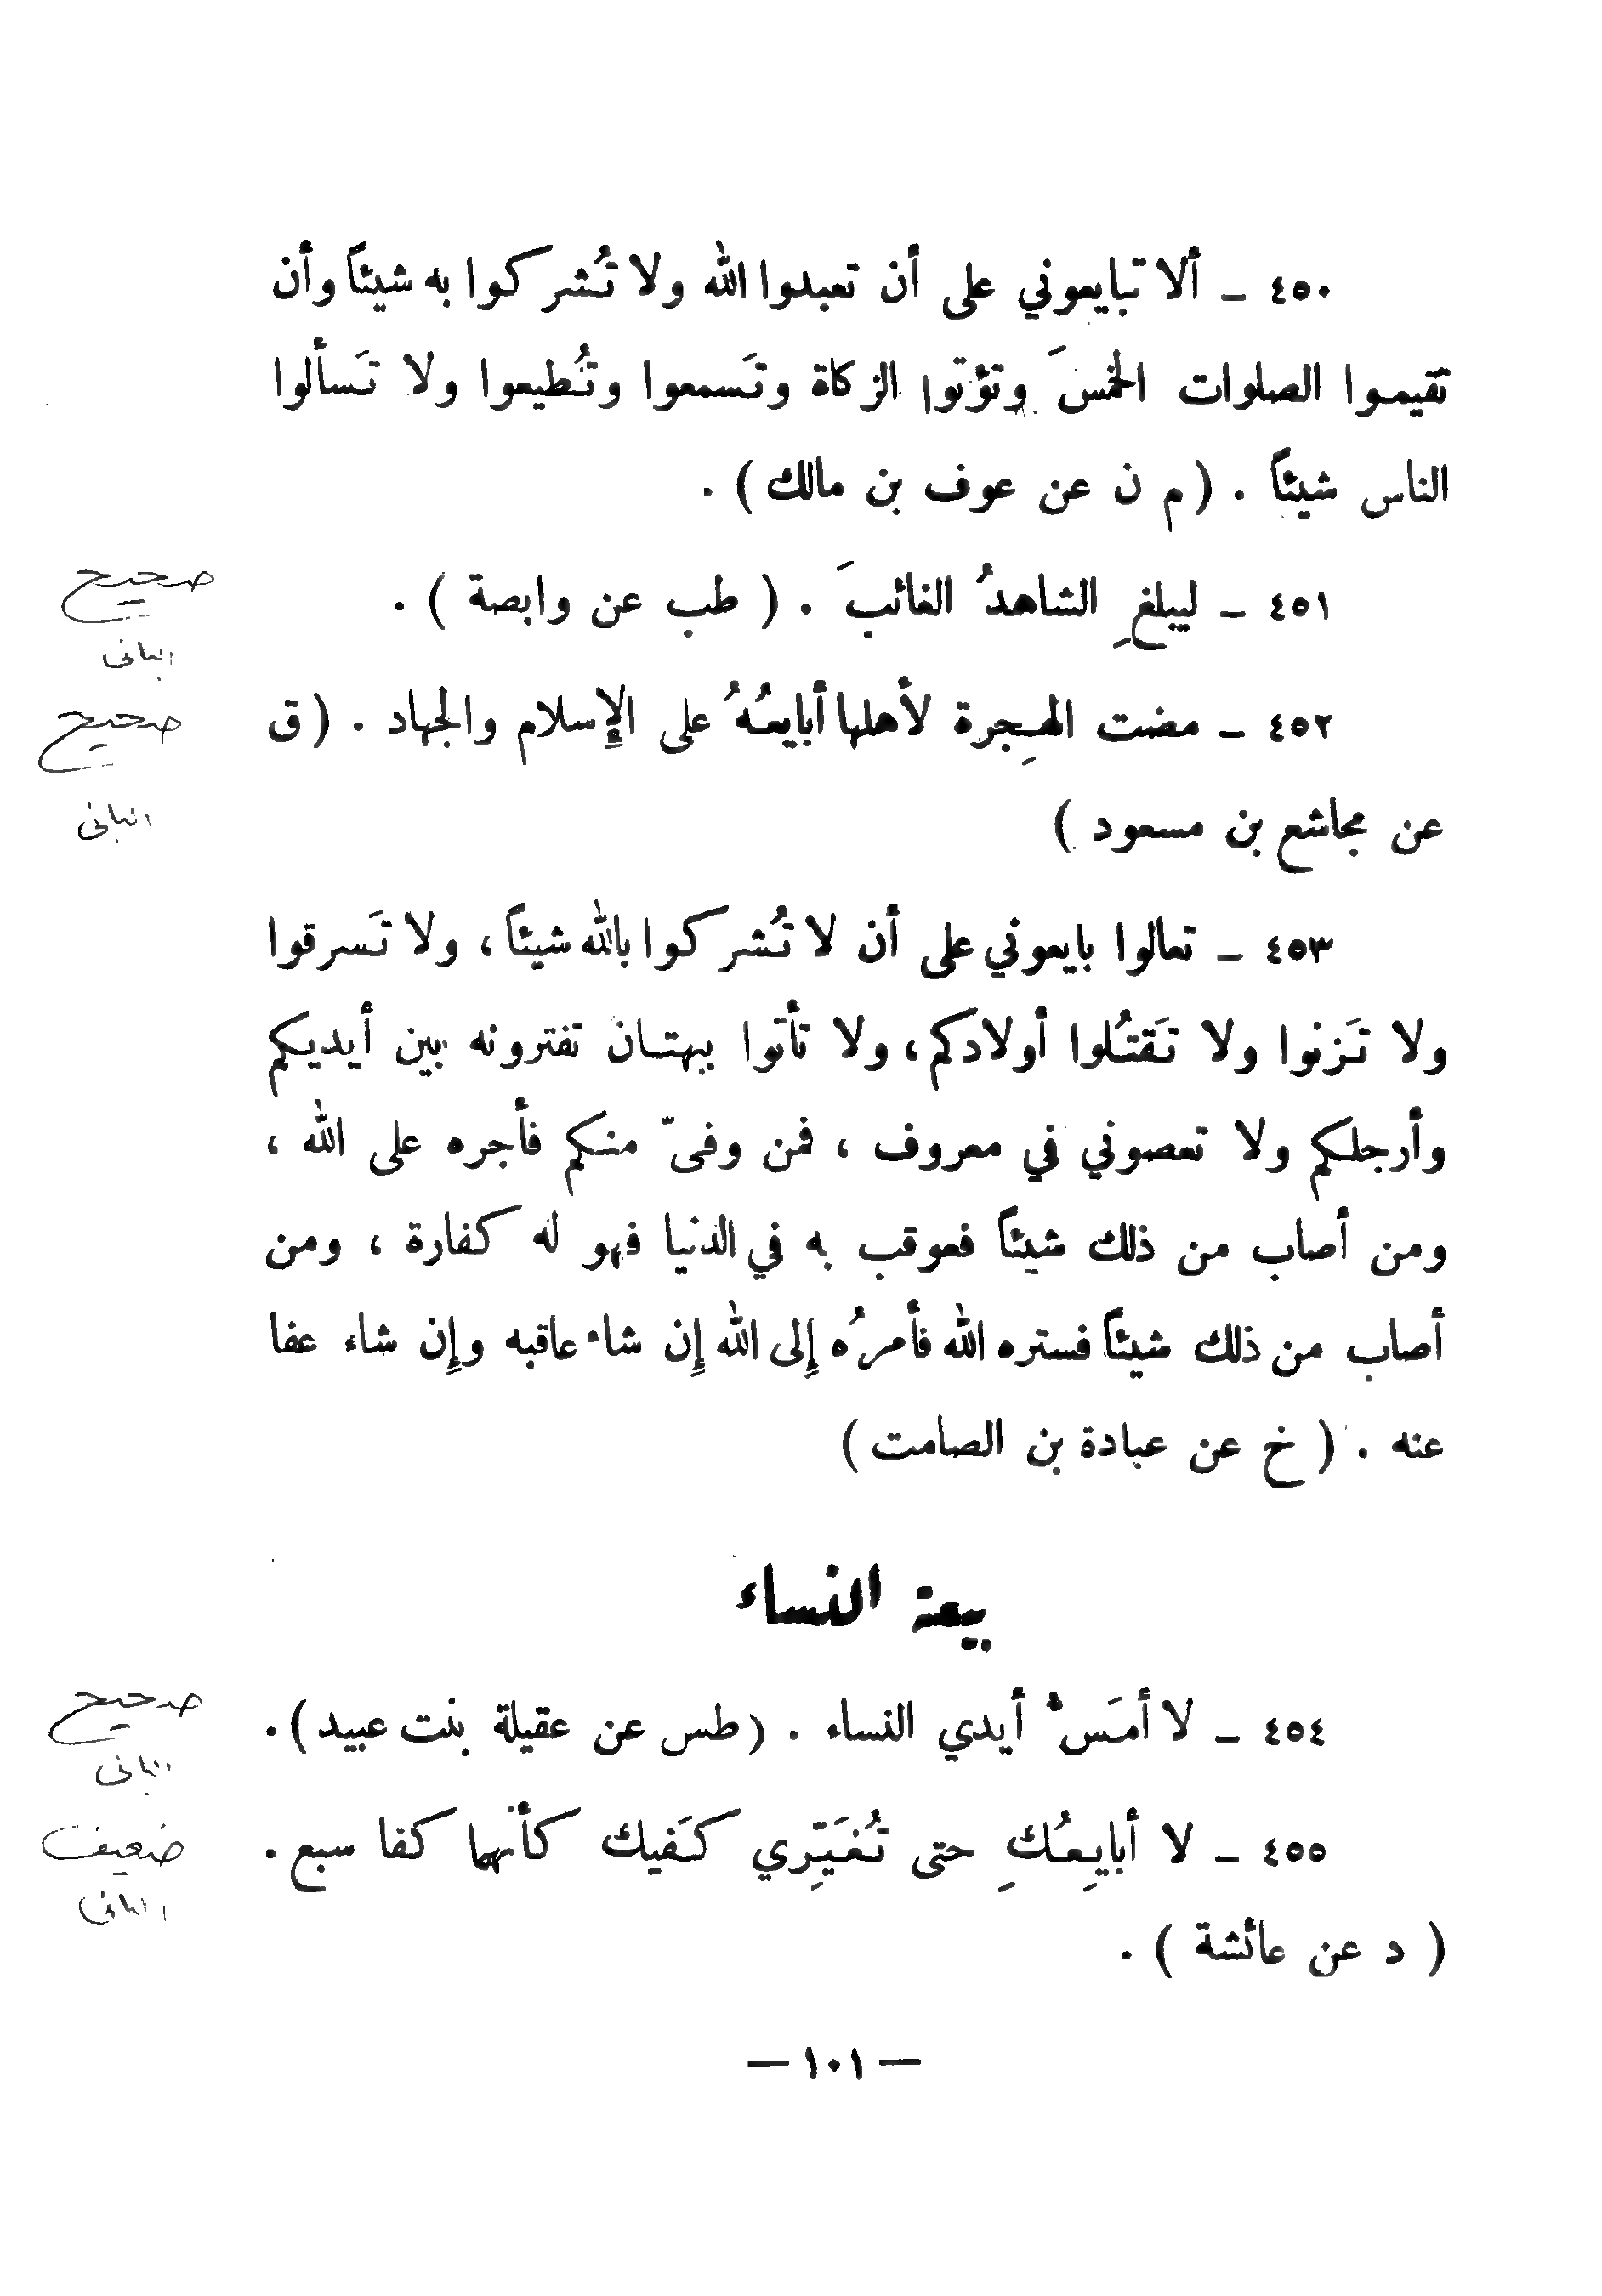 ٤٥٠ ـ ألا تبايعوني على أن تعبدوا الله ولا تُشركوا به شيئاً وأن
تقيموا الصلوات الخمسَ وتؤتوا الزكاة وتَسمعوا وتُطيعوا ولا تَسألوا
الناس شيئاً . ( م ن عن عوف بن مالك ) .
٤٥١ ـ ليبلغِ الشاهدُ الغائبَ . ( طب عن وابصة ) .
صحيح
البانى
٤٥٢ ـ مضت الهِجرة لأهلها أبايعُهُ على الإسلام والجهاد . ( ق
صحيح
عن مجاشع بن مسعود )
البانى
٤٥٣ ـ تعالوا بايعوني على أن لا تُشركوا بالله شيئاً ، ولا تَسرقوا
ولا تَزنوا ولا تَقتُلوا أولادكم ، ولا تأتوا ببهتان تفترونه بين أيديكم
وأرجلكم ولا تعصوني في معروف ، فمن وفىّ منكم فأجره على الله ،
ومن أصاب من ذلك شيئاً فعوقب به في الدنيا فهو له كفارة ، ومن
أصاب من ذلك شيئاً فستره الله فأمرُه إلى الله إن شاء عاقبه وإن شاء عفا
عنه . ( خ عن عبادة بن الصامت )
بيعة النساء
٤٥٤ ـ لا أمَسُّ أيدي النساء . ( طس عن عقيلة بنت عبيد ) .
صحيح
البانى
٤٥٥ ـ لا أبايِعُكِ حتى تُغَيِّري كَفيك كأنهما كفا سبع .
ضعيف
البانى
( د عن عائشة ) .
— ١٠١ —